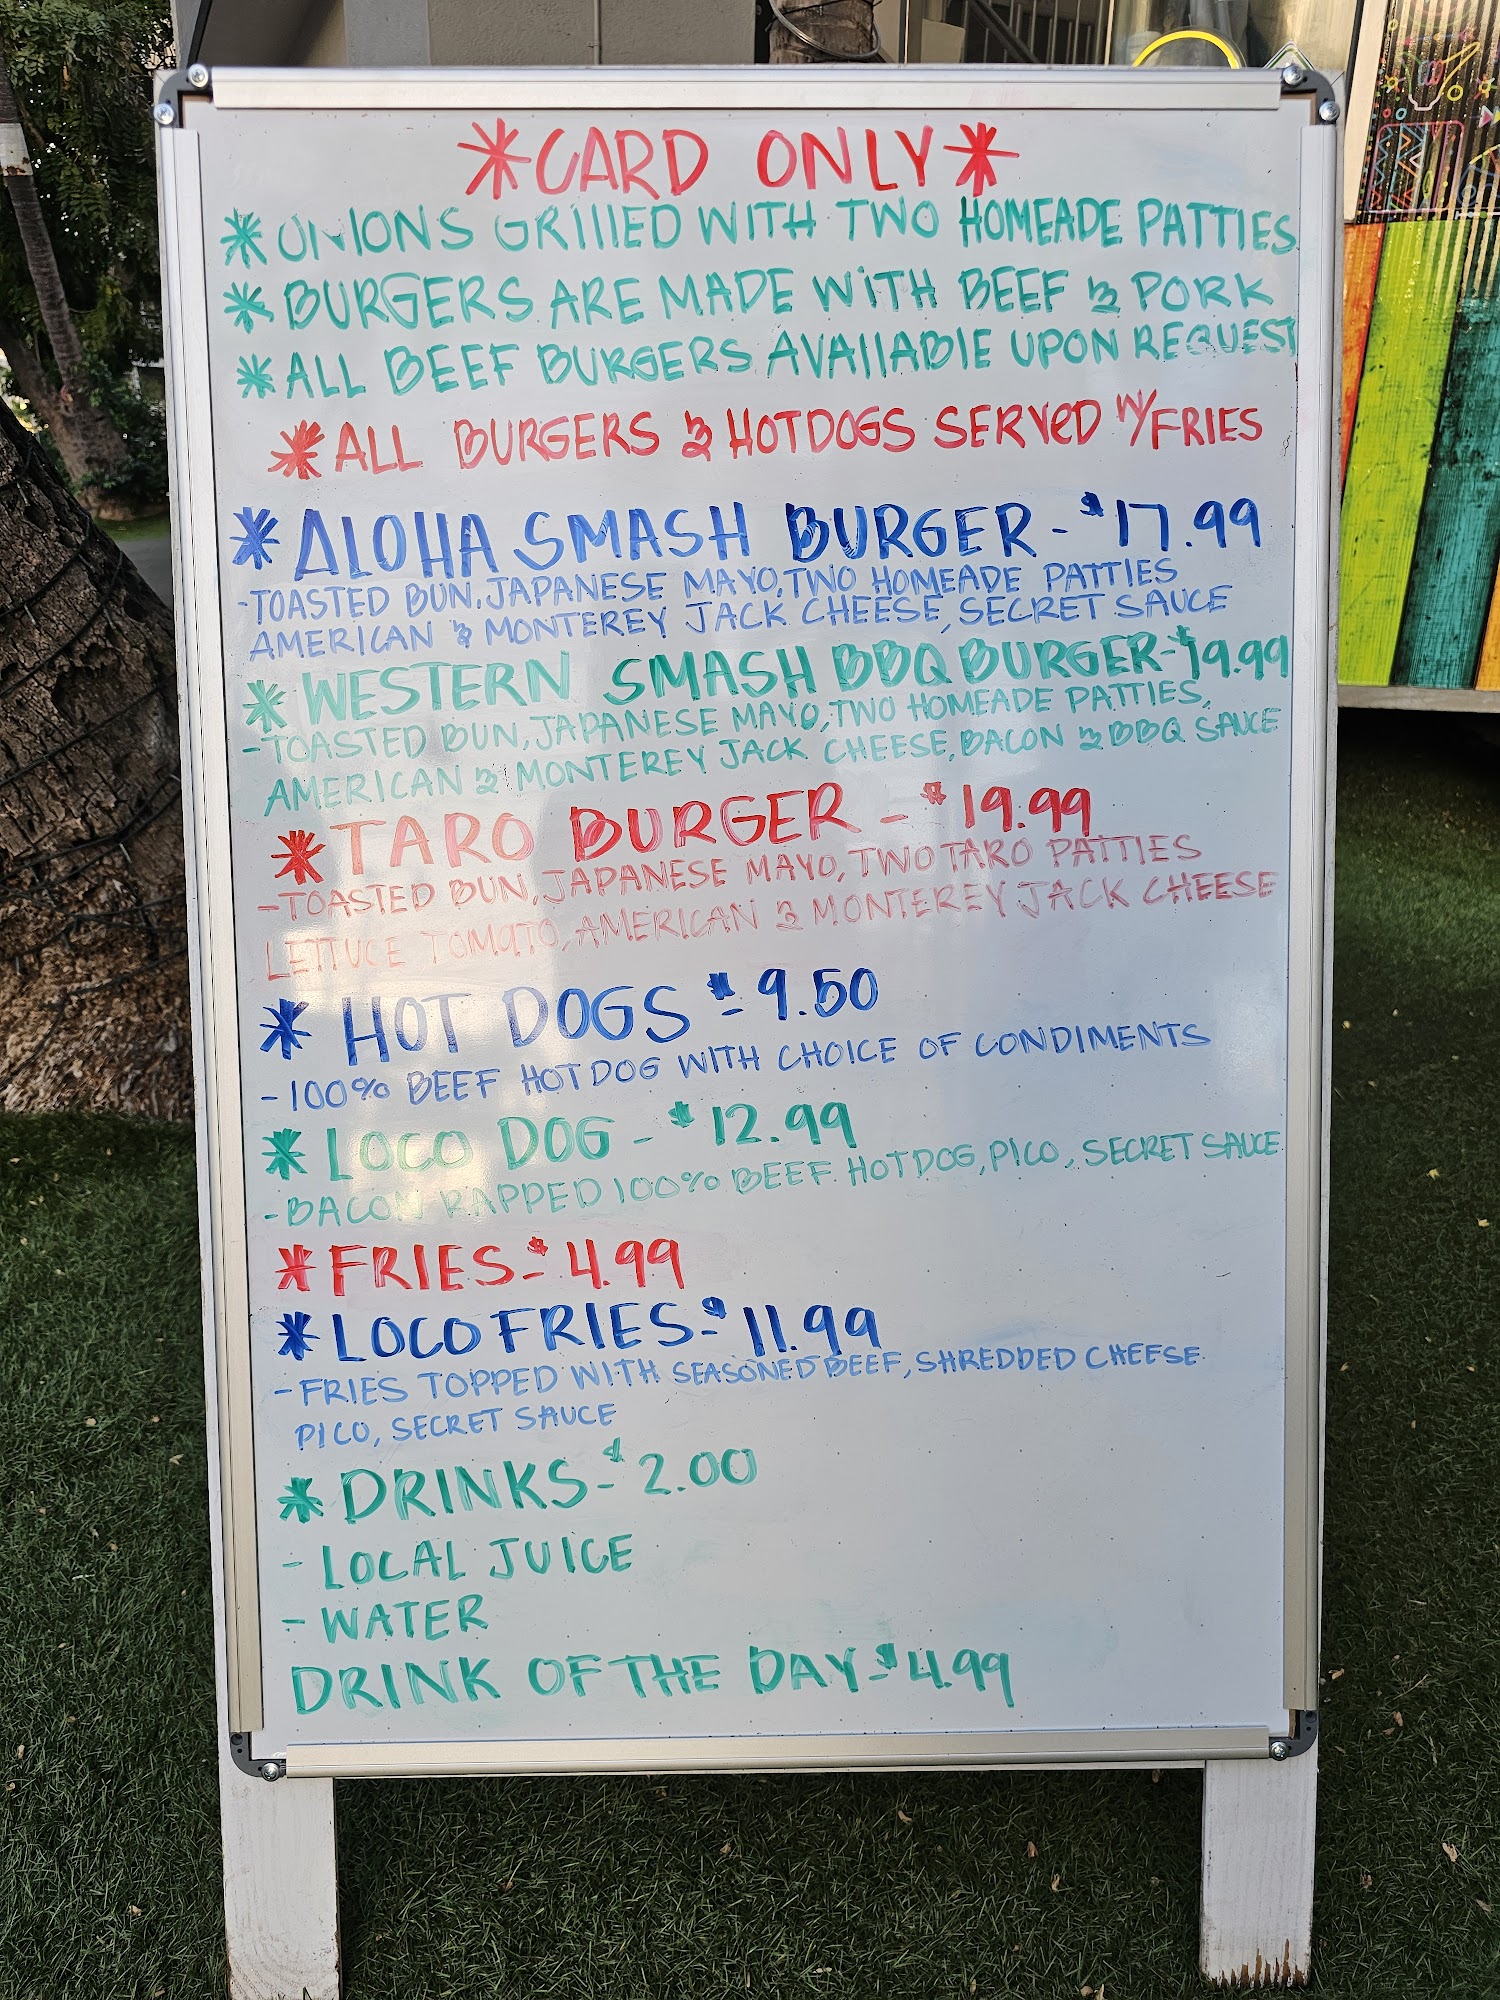 *CARD ONLY*
*ONIONS GRILLED WITH TWO HOMEADE PATTIES
*BURGERS ARE MADE WITH BEEF & PORK
*ALL BEEF BURGERS AVAILABLE UPON REQUEST
*ALL BURGERS & HOTDOGS SERVED W/FRIES
*ALOHA SMASH BURGER - $17.99
-TOASTED BUN, JAPANESE MAYO, TWO HOMEADE PATTIES
AMERICAN & MONTEREY JACK CHEESE, SECRET SAUCE
*WESTERN SMASH BBQ BURGER-$19.99
-TOASTED BUN, JAPANESE MAYO, TWO HOMEADE PATTIES,
AMERICAN & MONTEREY JACK CHEESE, BACON & BBQ SAUCE
*TARO BURGER - $19.99
-TOASTED BUN, JAPANESE MAYO, TWO TARO PATTIES
LETTUCE TOMATO, AMERICAN & MONTEREY JACK CHEESE
*HOT DOGS - $9.50
-100% BEEF HOTDOG WITH CHOICE OF CONDIMENTS
*LOCO DOG - $12.99
-BACON RAPPED 100% BEEF HOTDOG, PICO, SECRET SAUCE
*FRIES-$4.99
*LOCO FRIES-$11.99
-FRIES TOPPED WITH SEASONED BEEF, SHREDDED CHEESE
PICO, SECRET SAUCE
*DRINKS-$2.00
-LOCAL JUICE
-WATER
DRINK OF THE DAY-$4.99